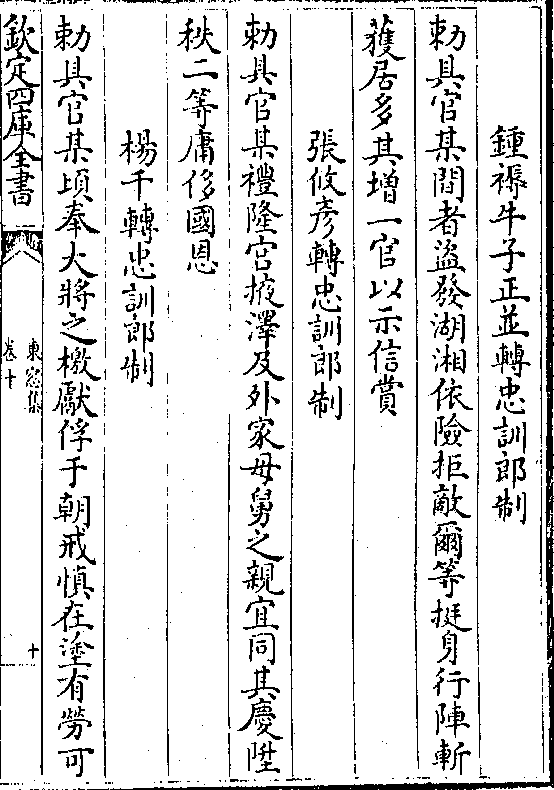 鍾褫牛子正並轉忠訓郎制
勅具官某間者盜發湖湘依險拒敵爾等挺身行陣斬
獲居多其增一官以示信賞
張攸彦轉忠訓郎制
勅具官某禮隆宮掖澤及外家母舅之親宜同其慶陞
秩二等庸侈國恩
楊千轉忠訓郎制
勅具官某頃奉大將之檄獻俘于朝戒慎在塗有勞可
欽定四庫全書
東窓集
卷十
十